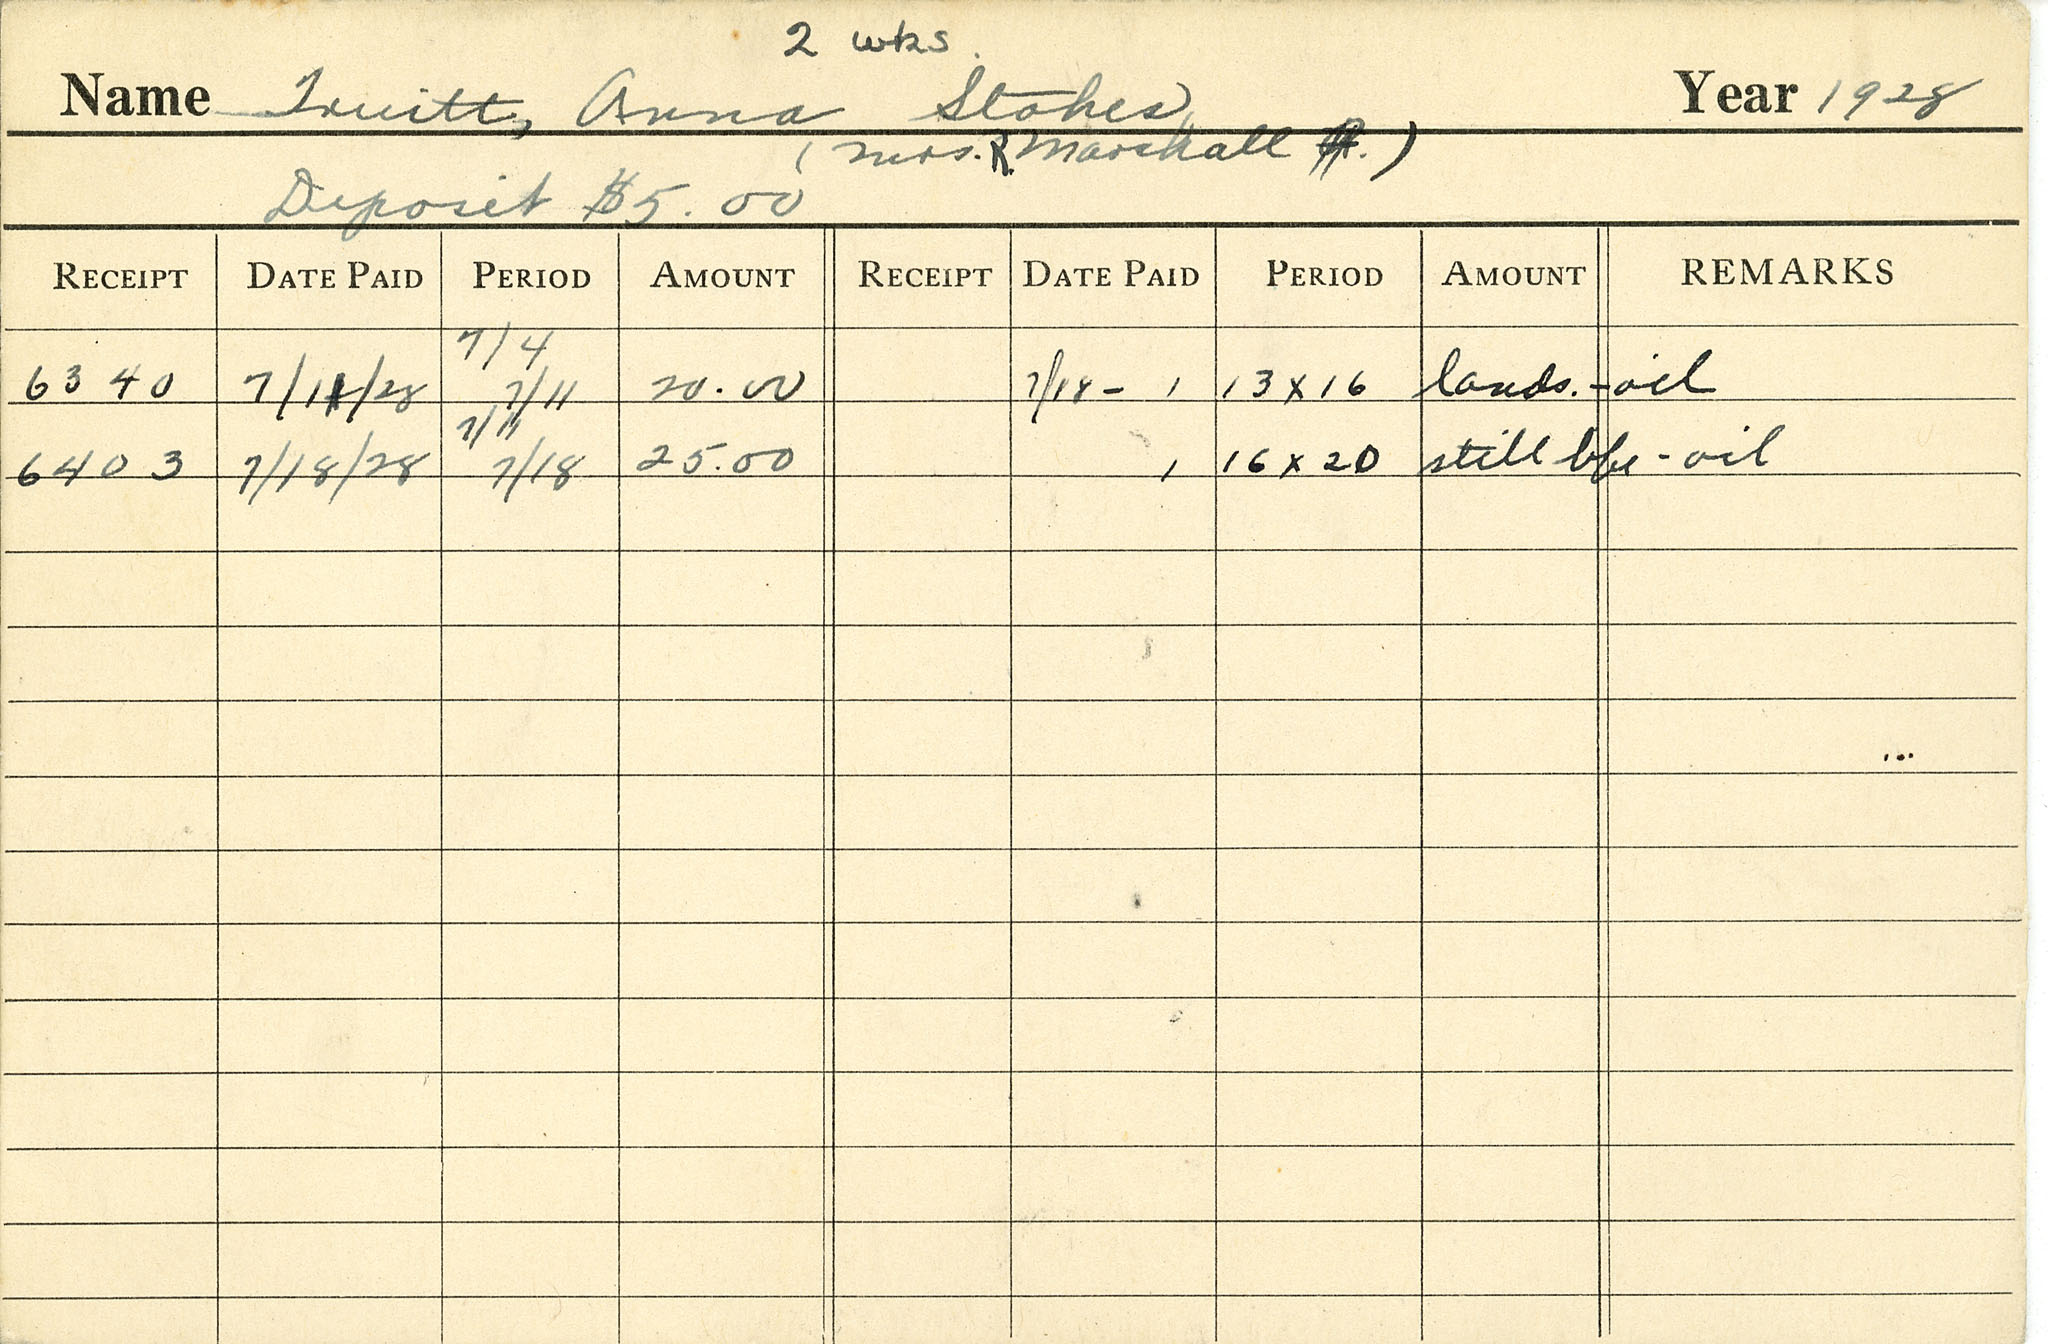 2 wks.
Name Truitt, Anna Stokes Year 1928
(Mrs. R. Marshall )
Deposit $5.00
RECEIPT DATE PAID PERIOD AMOUNT RECEIPT DATE PAID PERIOD AMOUNT REMARKS
7/4
6340 7/11/28 7/11 20.00 7/18 - 1 13 x 16 lands. - oil
7/11
6403 7/18/28 7/18 25.00 1 16 x 20 still life - oil